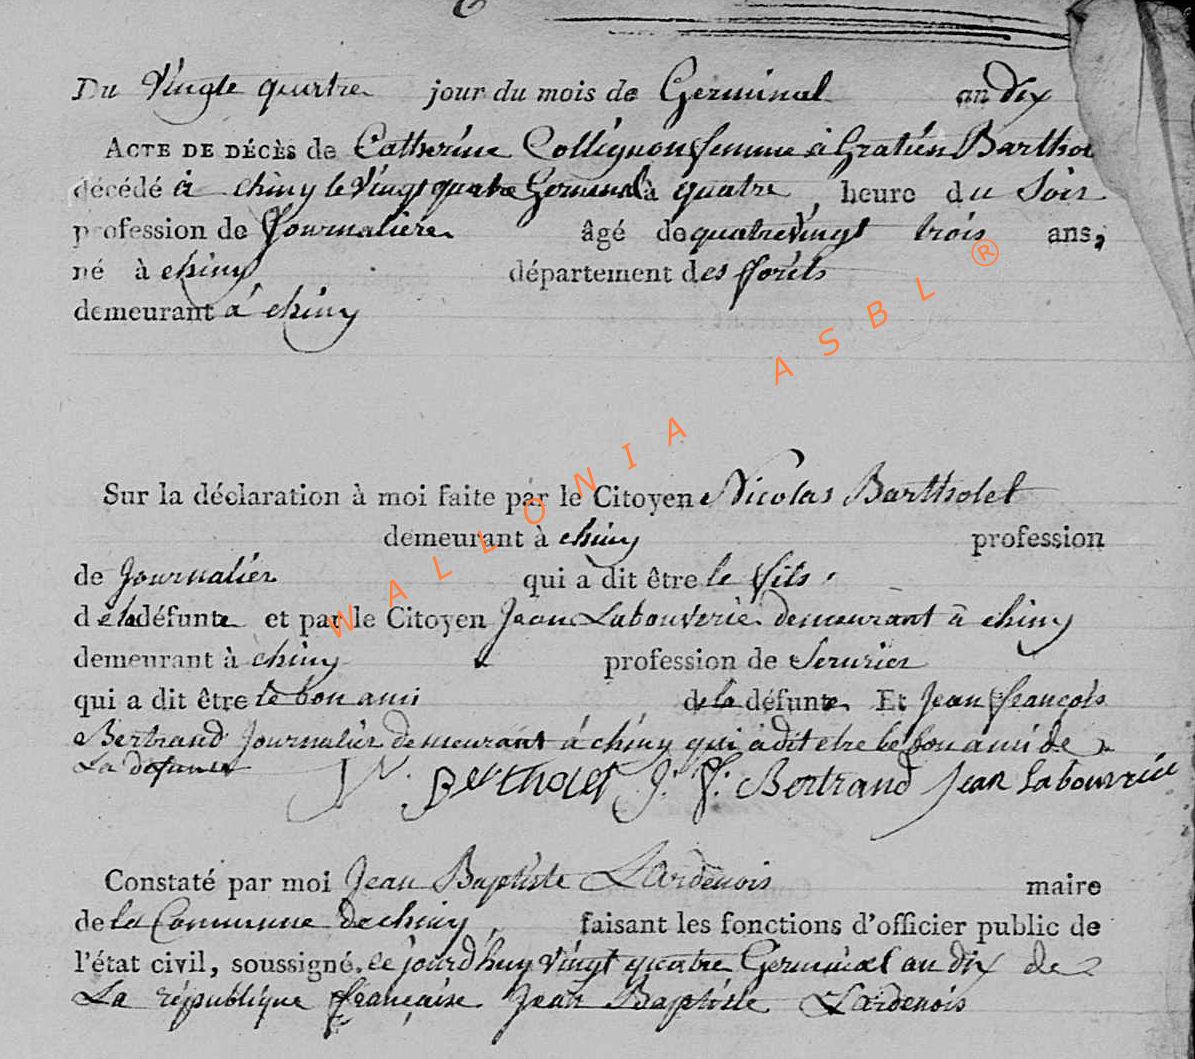 Du Vingte quattre jour du mois de Germinal an dix
ACTE DE DÉCÈS de Catherine Collignon femme à Gratien Barthol
décédé à chiny le Vingt quatre Germinal à quatre heure du Soir
profession de Journaliere âgé de quatre Vingt trois ans,
né à chiny département des forêts
demeurant à chiny
Sur la déclaration à moi faite par le Citoyen Nicolas Bartholet
demeurant à chiny profession
de Journalier qui a dit être le fils
de la défunte et par le Citoyen Jean Labouverie demeurant à chiny
demeurant à chiny profession de Serurier
qui a dit être le bon ami de la défunte Et Jean françois
Bertrand Journalier demeurant à chiny qui a dit etre le bon ami de
La defunte N. Bertholet J. f. Bertrand Jean Labouvrie
Constaté par moi Jean Baptiste Lardenois maire
de la Commune de chiny, faisant les fonctions d'officier public de
l'état civil, soussigné, ce jourd'huy Vingt quatre Germinal an dix de
La république française Jean Baptiste Lardenois
WALLONIA ASBL ®